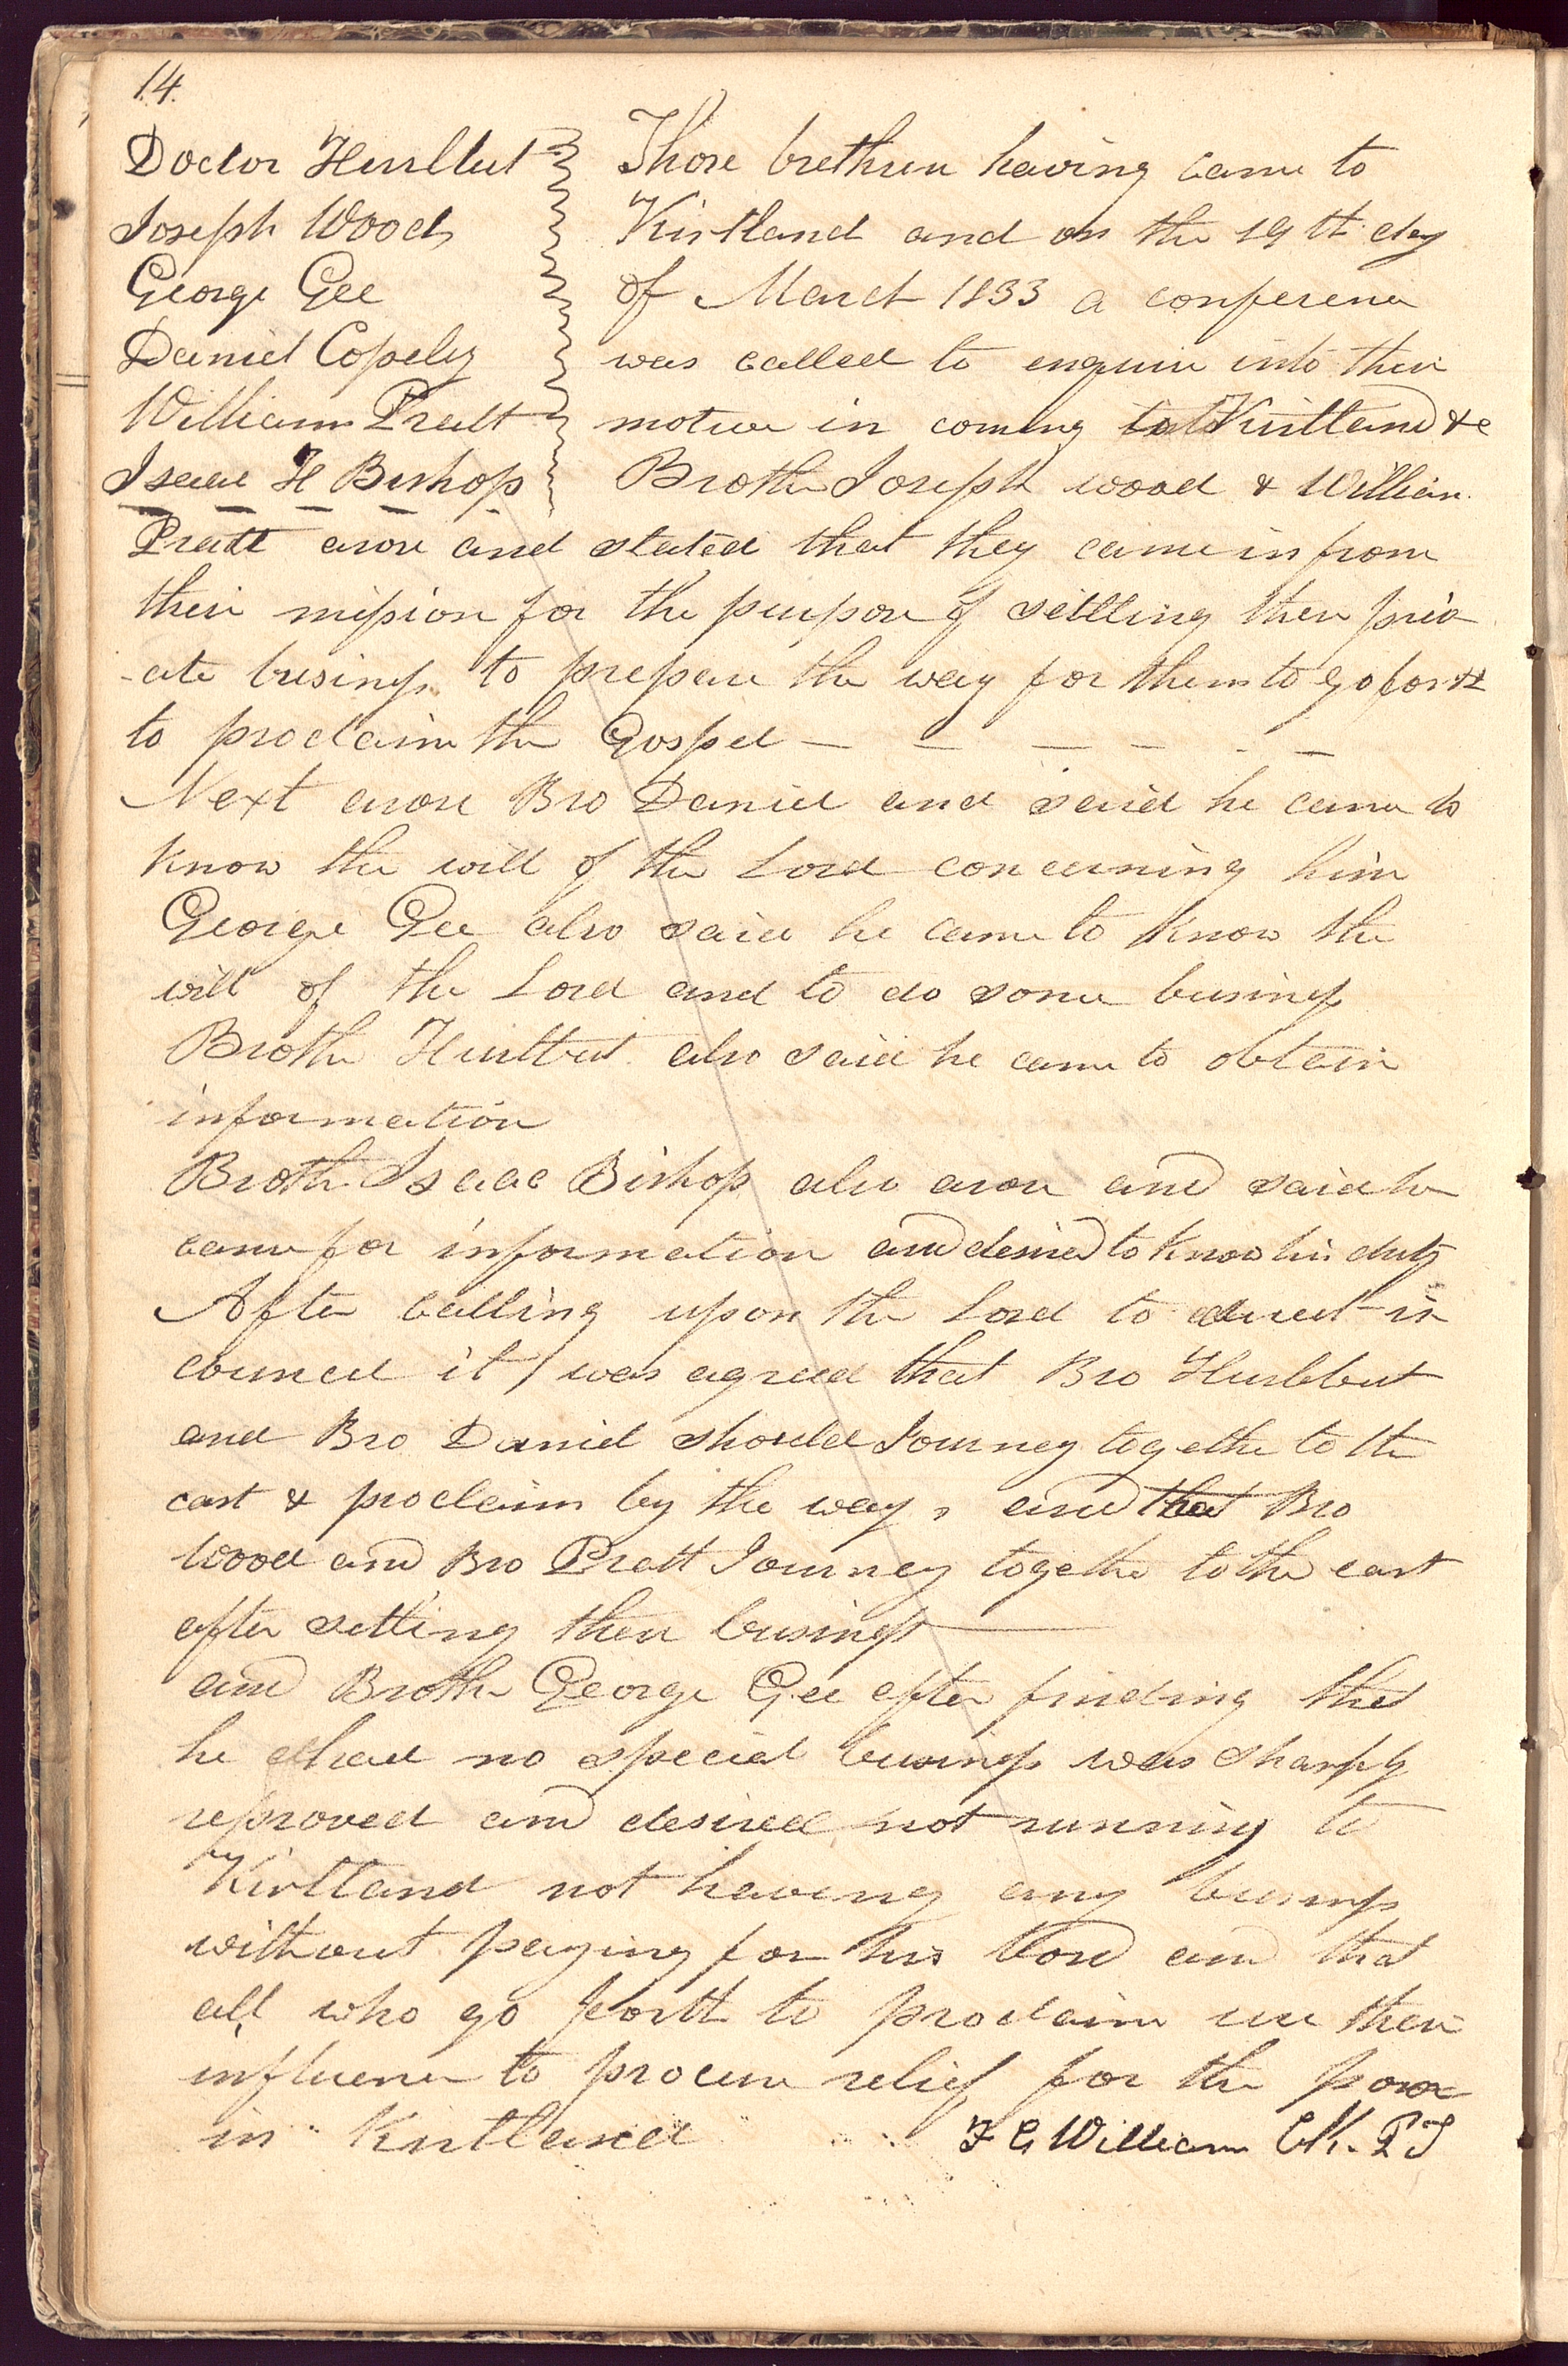 14.
Doctor Hurlbut
Joseph Wood
George Gee
Daniel Copely
William Pratt
Isaac H Bishop
Those brethren having came to
Kirtland and on the 19th day
of March 1833 a conference
was called to enquire into their
motive in coming to Kirtland &c
Brother Joseph wood & William
Pratt arose and stated that they came in from
their mission for the purpose of settling their priv
-ate business to prepare the way for them to go forth
to proclaim the Gospel — — — — - —
Next arose Bro Daniel and said he came to
know the will of the Lord concerning him
George Gee also said he came to know the
will of the Lord and to do some business
Brother Hurlbut also said he came to obtain
information
Brother Isaac Bishop also arose and said he
came for information and desired to know his duty
After calling upon the Lord to direct in
council it was agreed that Bro Hurlbut
and Bro Daniel should Journey together to the
east & proclaim by the way, and that Bro
Wood and Bro Pratt Journey together to the east
after setling their business
and Brother George Gee after finding that
he had no special business was sharply
reproved and desired not running to
Kirtland not having any business
without paying for his bord and that
all who go forth to proclaim use their
influence to procure relief for the poor
in Kirtland
F G William Clk. P T